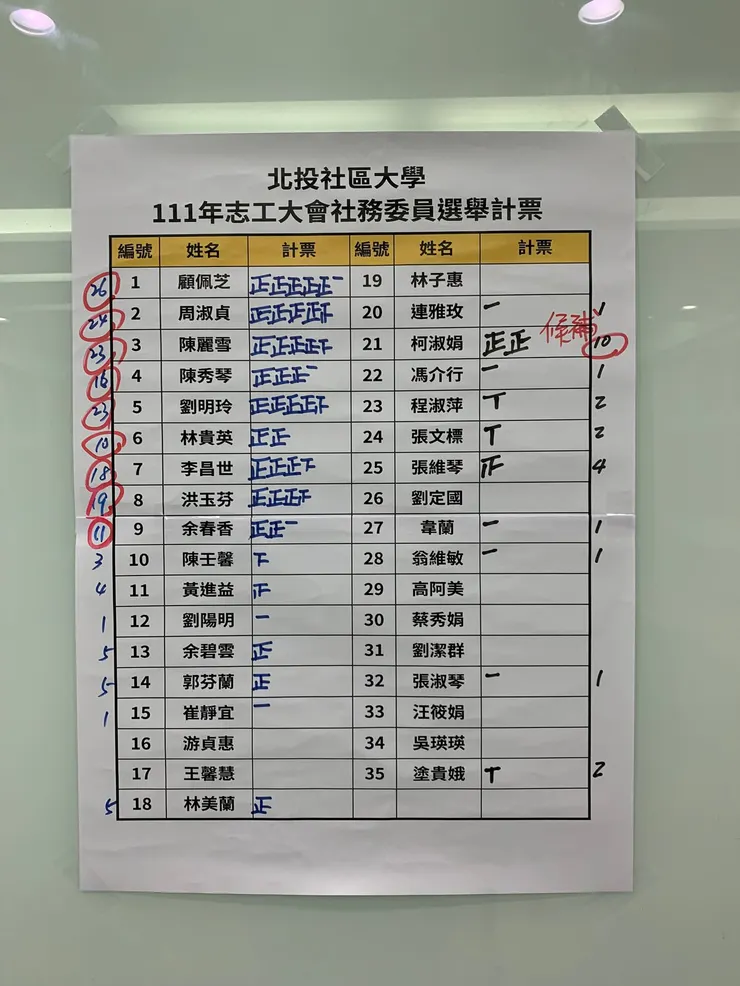 北投社區大學
111年志工大會社務委員選舉計票
編號 姓名 計票 編號 姓名 計票
26 1 顧佩芝 正正正正正一 19 林子惠
24 2 周淑貞 正正正正 20 連雅玫 一 1
23 3 陳麗雪 正正正正 21 柯淑娟 正正 候補 10
16 4 陳秀琴 正正正一 22 馮介行 一 1
23 5 劉明玲 正正正正 23 程淑萍 T 2
10 6 林貴英 正正 24 張文標 T 2
18 7 李昌世 正正正下 25 張維琴 4
19 8 洪玉芬 正正正 26 劉定國
11 9 余春香 正正一 27 韋蘭 一 1
3 10 陳王馨 下 28 翁維敏 一 1
4 11 黃進益 29 高阿美
1 12 劉陽明 一 30 蔡秀娟
5 13 余碧雲 正 31 劉潔群
5 14 郭芬蘭 正 32 張淑琴 一 1
1 15 崔靜宜 一 33 汪筱娟
16 游貞惠 34 吳瑛瑛
17 王馨慧 35 塗貴娥 T 2
5 18 林美蘭 正